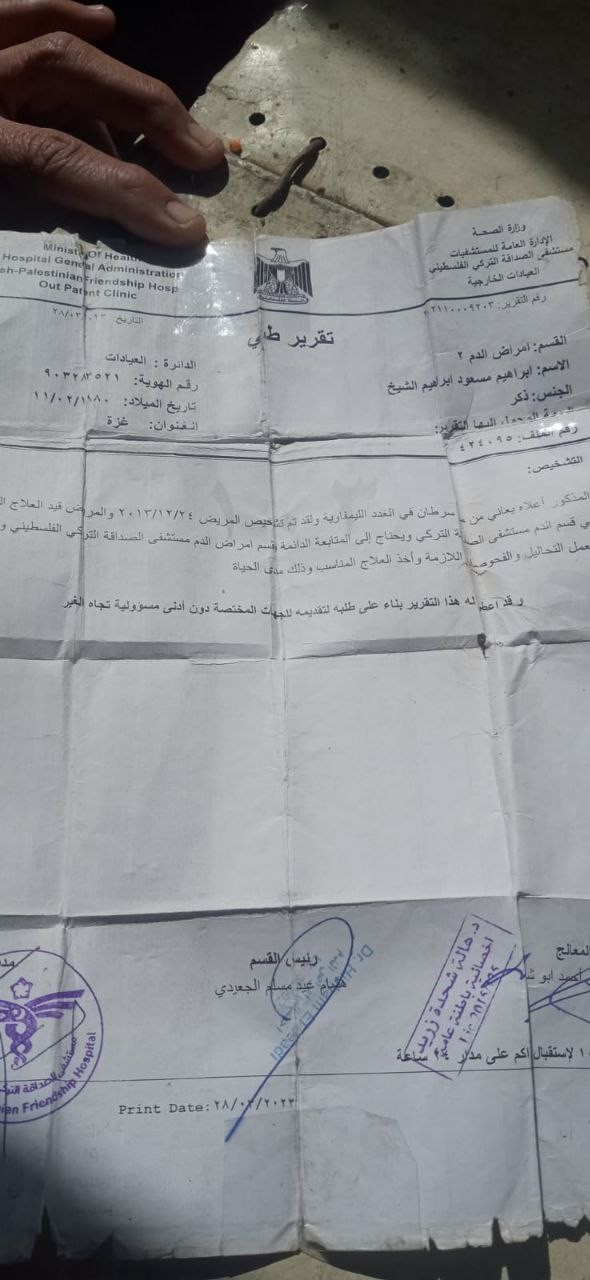 وزارة الصحة
الإدارة العامة للمستشفيات
مستشفى الصداقة التركي الفلسطيني
العيادات الخارجية
Ministry Of Health
Hospital General Administration
sh-Palestinian Friendship Hosp
Out Patient Clinic
رقم التقرير:
التاريخ:
تقرير طبي
القسم: امراض الدم ٢
الدائرة : العيادات
الاسم: ابراهيم مسعود ابراهيم الشيخ
رقم الهوية:
الجنس: ذكر
تاريخ الميلاد: ١١/٠٢/١٩٨٠
الجهة الموجه اليها التقرير:
العنوان: غزة
رقم الملف: ٤٢٤٠٩٥
التشخيص:
المذكور اعلاه يعاني من سرطان في الغدد الليمفاوية ولقد تم تشخيص المريض ٢٠١٣/١٢/٢٤ والمريض قيد العلاج
في قسم الدم مستشفى الصداقة التركي ويحتاج إلى المتابعة الدائمة بقسم امراض الدم مستشفى الصداقة التركي الفلسطيني و
عمل التحاليل والفحوصات اللازمة وأخذ العلاج المناسب وذلك مدى الحياة
وقد اعطي له هذا التقرير بناء على طلبه لتقديمه للجهات المختصة دون أدنى مسؤولية تجاه الغير
المعالج
رئيس القسم
أحمد ابو
هشام عيد مسلم الجعيدي
د. هالة شحدة زريد
اخصائية باطنة عامة
لإستقبالكم على مدار ساعة
مستشفى الصداقة
ian Friendship Hospital
Print Date: ٢٨/٠٣/٢٠٢٣